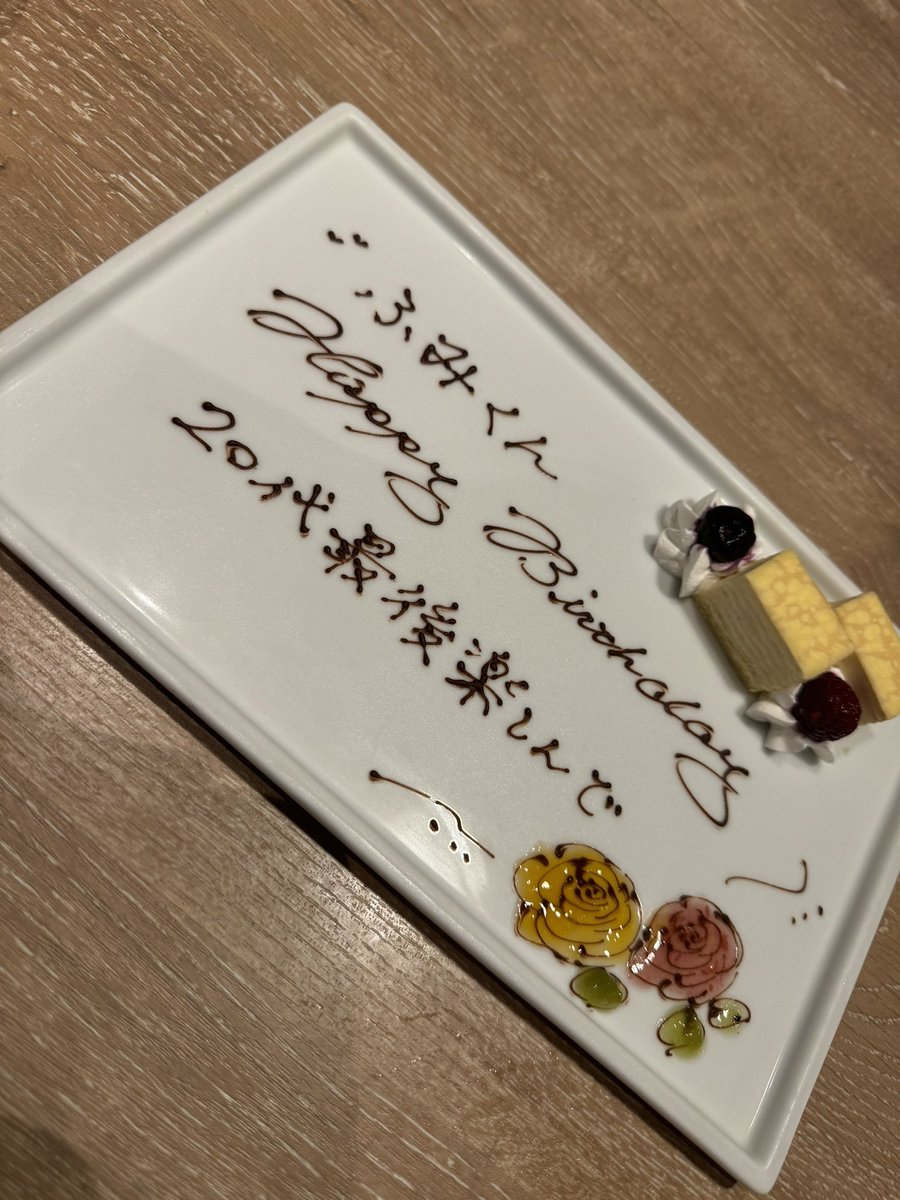 ふみくん
Happy Birthday
20代最後楽しんで